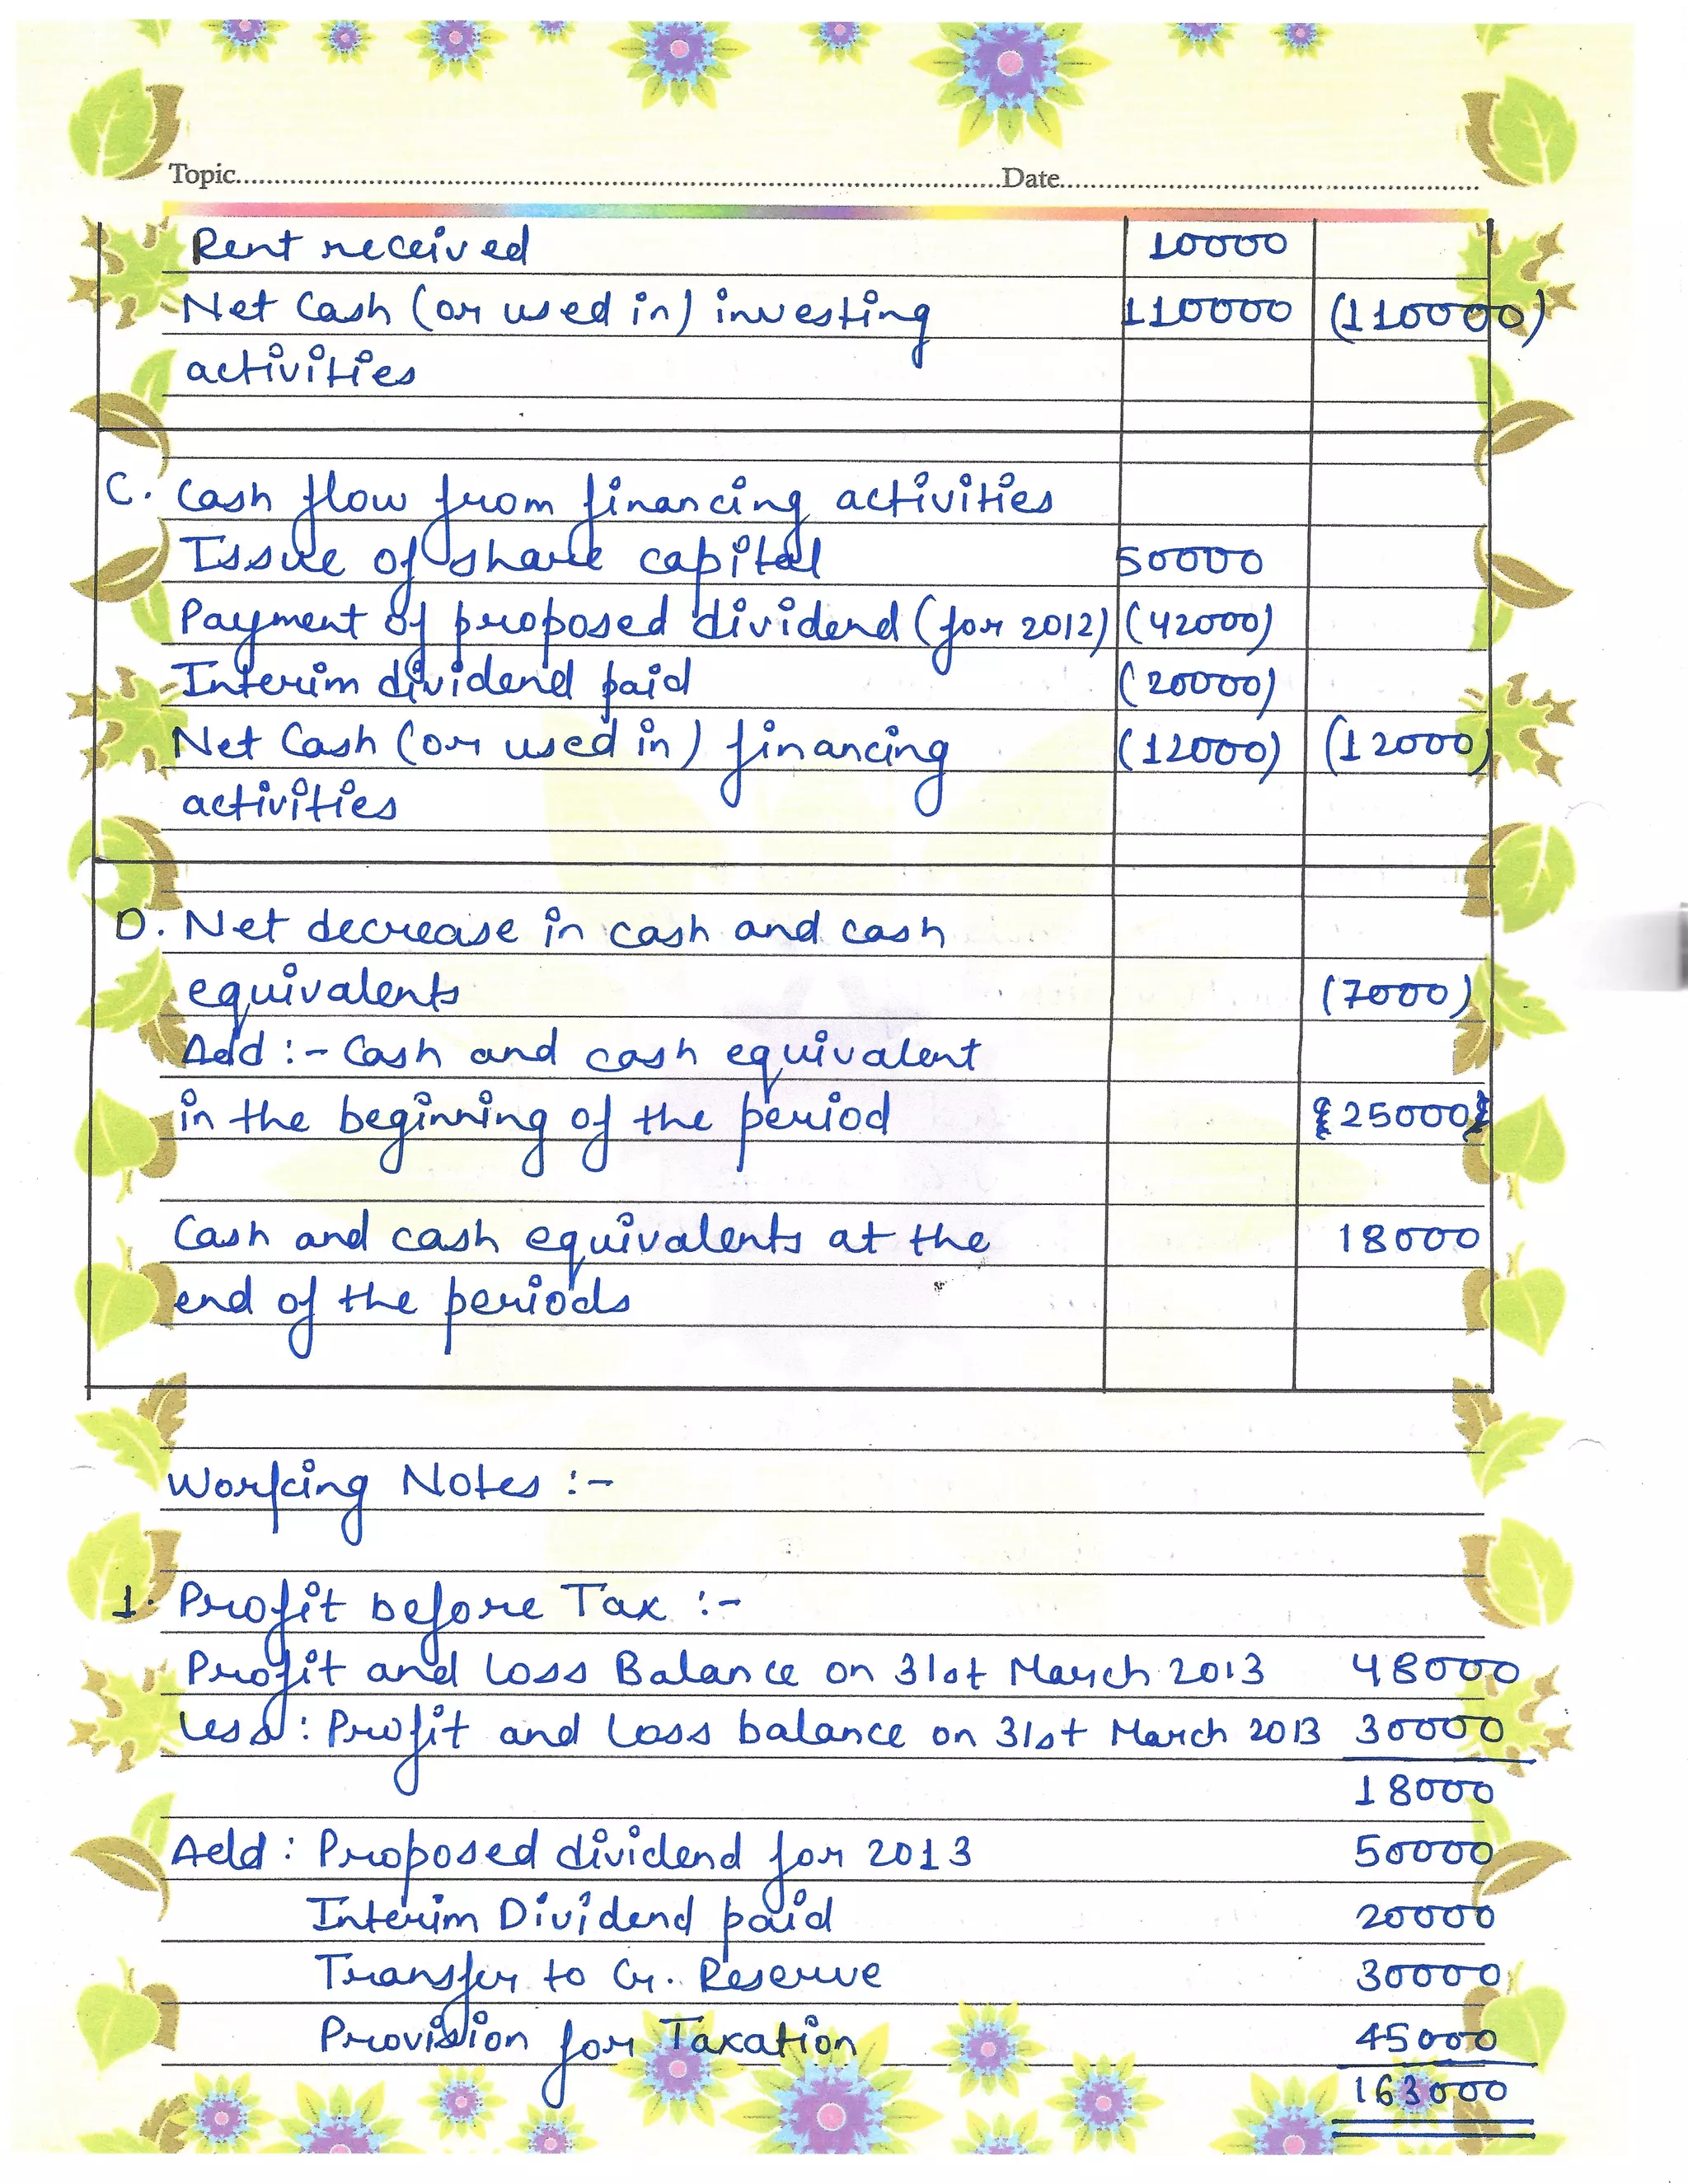 Topic Date
Rent received 10000
Net Cash (or used in) investing 110000 (110000)
activities
C. Cash flow from financing activities
Issue of share capital 50000
Payment of proposed dividend (for 2012) (42000)
Interim dividend paid (20000)
Net Cash (or used in) financing (12000) (12000)
activities
D. Net decrease in cash and cash
equivalents (7000)
Add :- Cash and cash equivalent
in the beginning of the period 25000
Cash and cash equivalents at the 18000
end of the periods
Working Notes :-
1. Profit before Tax :-
Profit and Loss Balance on 31st March 2013 48000
Less : Profit and Loss balance on 31st March 2013 30000
18000
Add : Proposed dividend for 2013 50000
Interim Dividend paid 20000
Transfer to Gr. Reserve 30000
Provision for Taxation 45000
163000